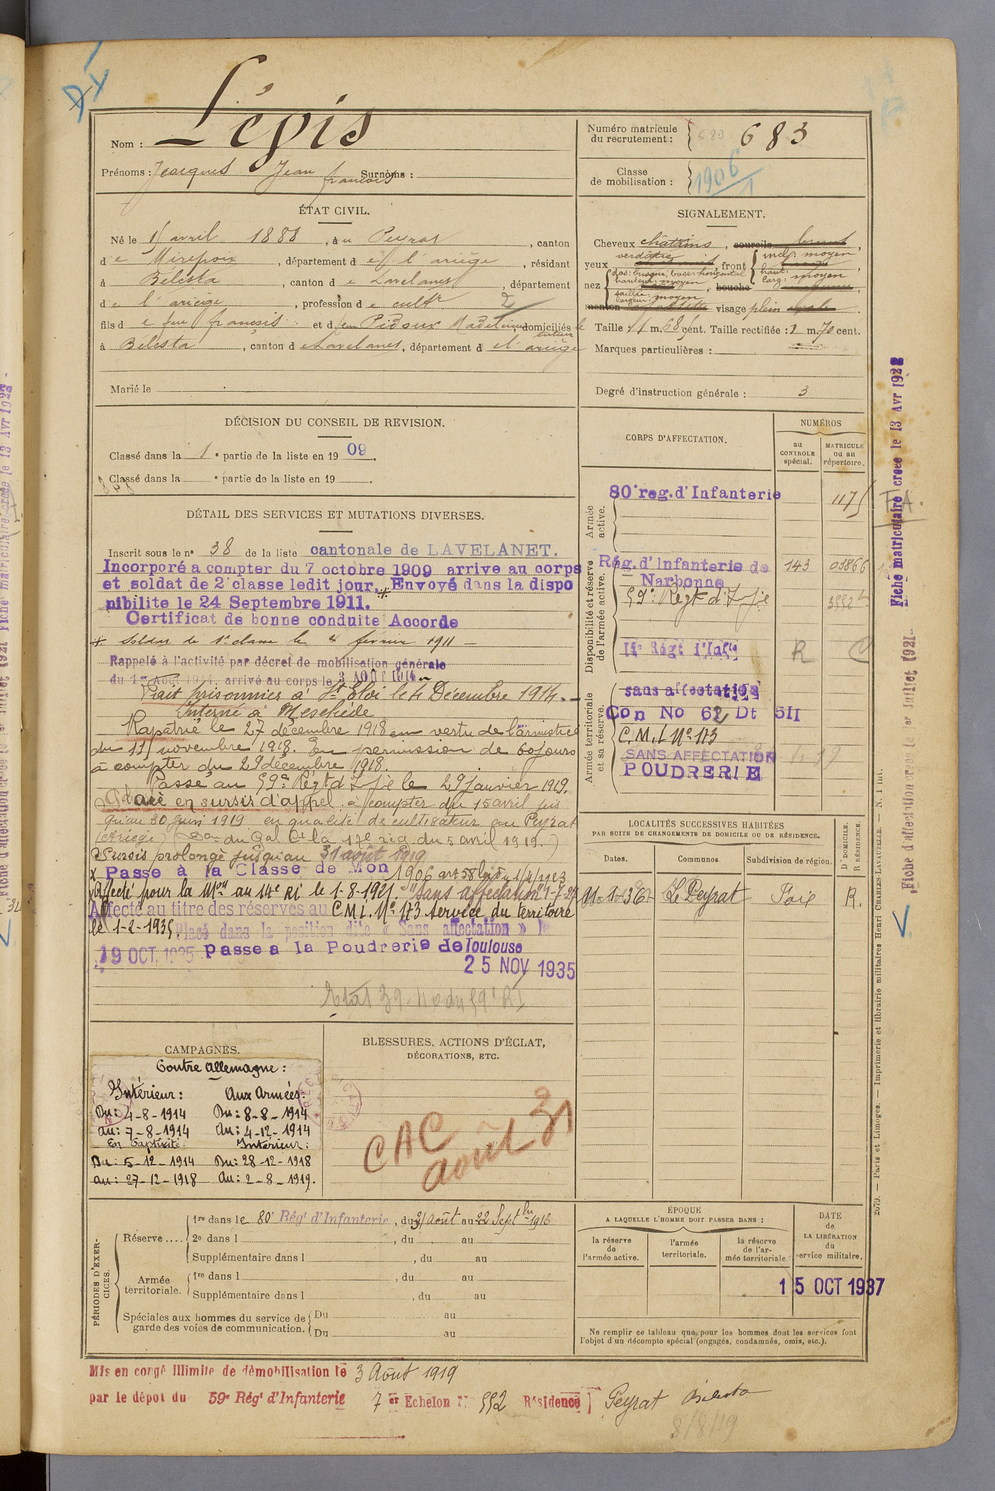 Nom : Lépis
Prénoms : Jacques Jean françois Surnoms :
Numéro matricule du recrutement : 683
Classe de mobilisation : 1906
ÉTAT CIVIL.
Né le avril 1888, à au Peyrat, canton
d e Mirepoix, département d e l'ariège, résidant
à Bélesta, canton d e Lavelanet, département
d e l'ariège, profession d e cultr
fils d e feu françois et d domiciliés
à Bélesta, canton d e Lavelanet, département d e l'ariège
Marié le
SIGNALEMENT.
Cheveux châtains, sourcils
yeux verdâtres, front incl. moyen haut. larg. moyen
nez dos: busqué, base: horizontal hauteur: moyen, bouche
saillie largeur: moyen
menton visage plein
Taille : 1 m. 68 cent. Taille rectifiée : 1 m. 70 cent.
Marques particulières :
Degré d'instruction générale : 3
DÉCISION DU CONSEIL DE REVISION.
Classé dans la 1e partie de la liste en 1909.
Classé dans la e partie de la liste en 19
DÉTAIL DES SERVICES ET MUTATIONS DIVERSES.
Inscrit sous le n° 38 de la liste cantonale de LAVELANET.
Incorporé à compter du 7 octobre 1909 arrive au corps
et soldat de 2e classe ledit jour. * Envoyé dans la dispo
nibilite le 24 Septembre 1911.
Certificat de bonne conduite Accorde
* Soldat de 1e classe le février 1911
Rappelé à l'activité par décret de mobilisation générale
du 1er Août 1914, arrivé au corps le 3 AOÛT 1914
Fait prisonnier à St Eloi le 4 Décembre 1914.
Interné à Meschede
Rapatrié le 27 décembre 1918 en vertu de l'armistice
du 11 novembre 1918. En permission de 60 jours
à compter du 29 décembre 1918.
Passé au 59e Régt d'Ifie le 29 Janvier 1919.
Placé en sursis d'appel à compter du 15 avril jus
qu'au 30 juin 1919 en qualité de cultivateur au Peyrat
(Ariège) du Gal Ct la 17e rég. du 5 avril 1919.)
Sursis prolongé jusqu'au 31 août 1919
Passé à la Classe de Mon 1906 art 58 loi du 1/4/1923
Affecté pour la Mon au 14e RI le 1-8-1921 "Sans affectation"
Affecté au titre des réserves au C.M.I. N° 173 Service du territoire
le 1-2-1935. Placé dans la position dite « Sans affectation » le
19 OCT. 1935 passe a la Poudrerie de Toulouse
25 NOV 1935
CORPS D'AFFECTATION.
NUMÉROS
au CONTROLE spécial.
MATRICULE ou au répertoire.
Armée active.
80e reg. d'Infanterie
Disponibilité et réserve de l'armée active.
Rég. d'Infanterie de Narbonne 143 03866
59e Régt d'Ifie
14e Régt d'Infie R
Armée territoriale et sa réserve.
sans affectation
Con No 62 Dt 511
C.M.I. N° 173
SANS AFFECTATION
POUDRERIE
LOCALITÉS SUCCESSIVES HABITÉES
PAR SUITE DE CHANGEMENTS DE DOMICILE OU DE RÉSIDENCE.
Dates. Communes. Subdivision de région. D. DOMICILE. R. RÉSIDENCE.
Le Peyrat Foix R.
CAMPAGNES.
Contre Allemagne :
Intérieur : Aux Armées :
Du : 4-8-1914 Du : 8-8-1914
au : 7-8-1914 au : 4-12-1914
En Captivité : Intérieur :
Du : 5-12-1914 Du : 28-12-1918
au : 27-12-1918 au : 2-8-1919.
BLESSURES, ACTIONS D'ÉCLAT,
DÉCORATIONS, ETC.
CAC
août 31
PÉRIODES D'EXERCICES.
Réserve
1re dans le 80e Régt d'Infanterie, du 31 août au 22 Septbre 1913
2e dans l , du au
Supplémentaire dans l , du au
Armée territoriale.
1re dans l , du au
Supplémentaire dans l , du au
Spéciales aux hommes du service de garde des voies de communication.
Du au
Du au
ÉPOQUE
A LAQUELLE L'HOMME DOIT PASSER DANS :
la réserve de l'armée active.
l'armée territoriale.
la réserve de l'armée territoriale.
DATE de LA LIBÉRATION du service militaire.
15 OCT 1937
Ne remplir ce tableau que pour les hommes dont les services font
l'objet d'un décompte spécial (engagés, condamnés, omis, etc.).
Mis en congé illimité de démobilisation le 3 Août 1919
par le dépôt du 59e Régt d'Infanterie 7 er Echelon N° 552 Résidence Peyrat Bélesta
8/8/19
Fiche matriculaire creee le 13 Avr 1922
Fiche d'affectation creee le 1er Juillet 1921
2079. — Paris et Limoges. — Imprimerie et librairie militaires Henri CHARLES-LAVAUZELLE.